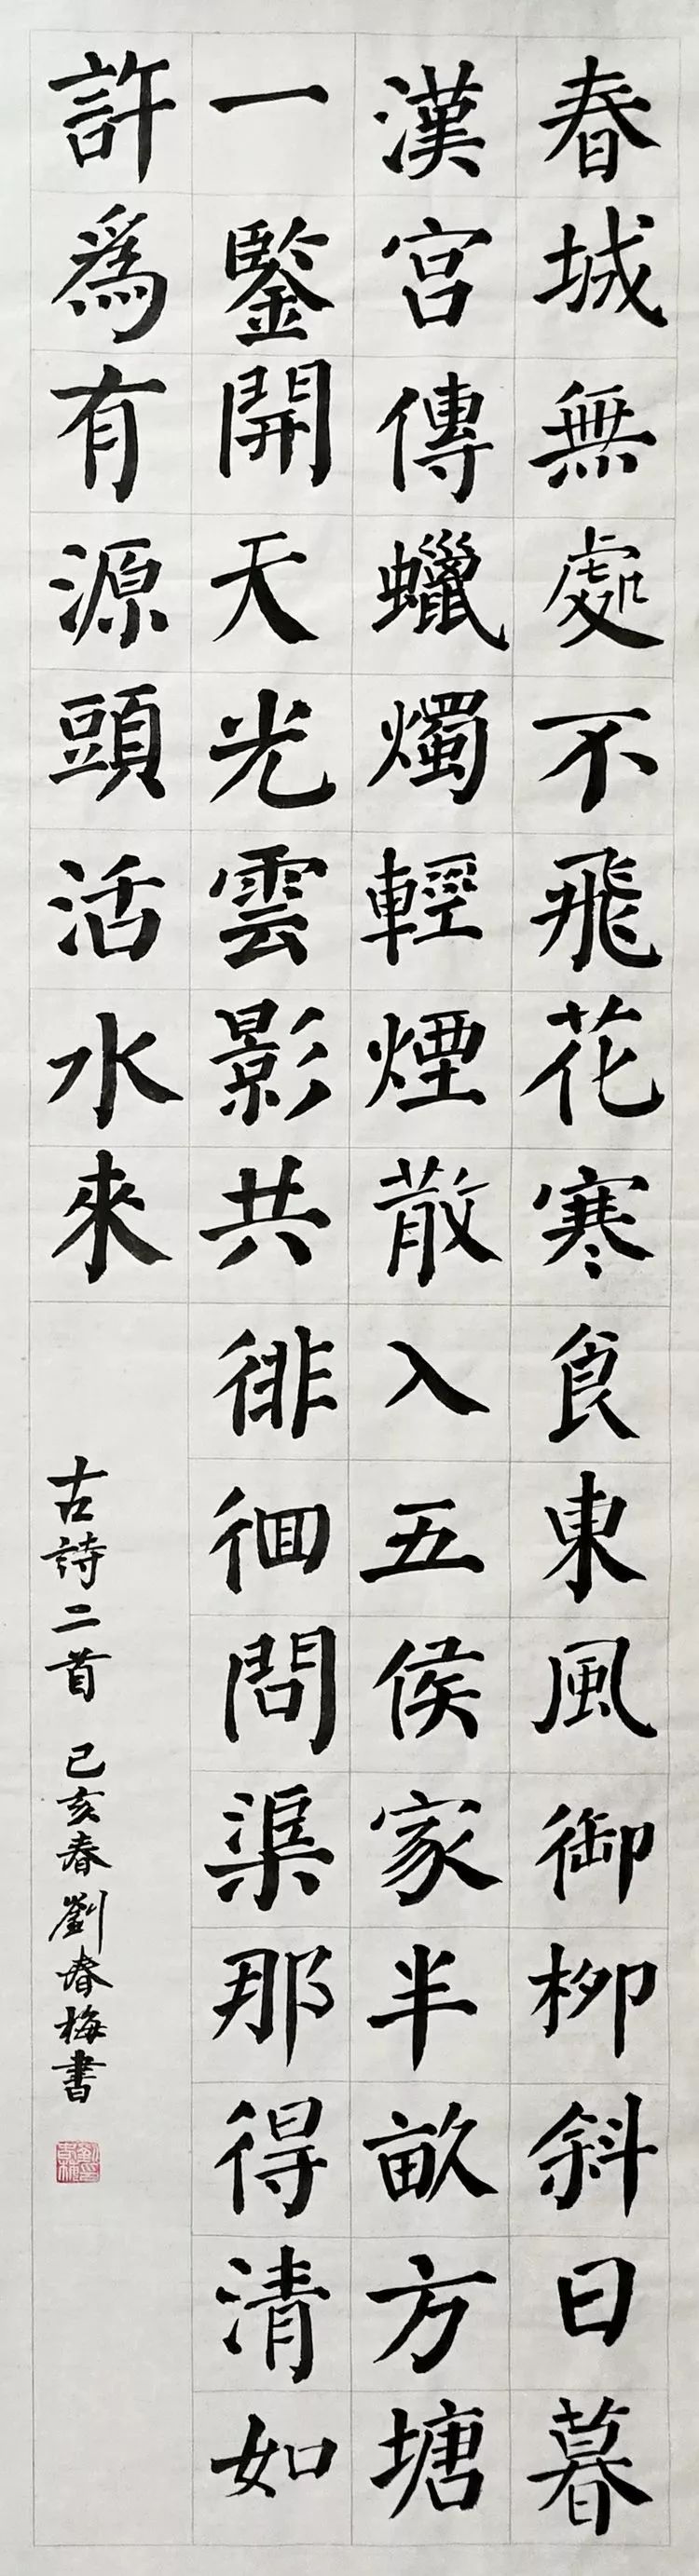 春城無處不飛花寒食東風御柳斜日暮
漢宮傳蠟燭輕煙散入五侯家半畝方塘
一鑒開天光雲影共徘徊問渠那得清如
許為有源頭活水來
古詩二首 己亥春劉春梅書